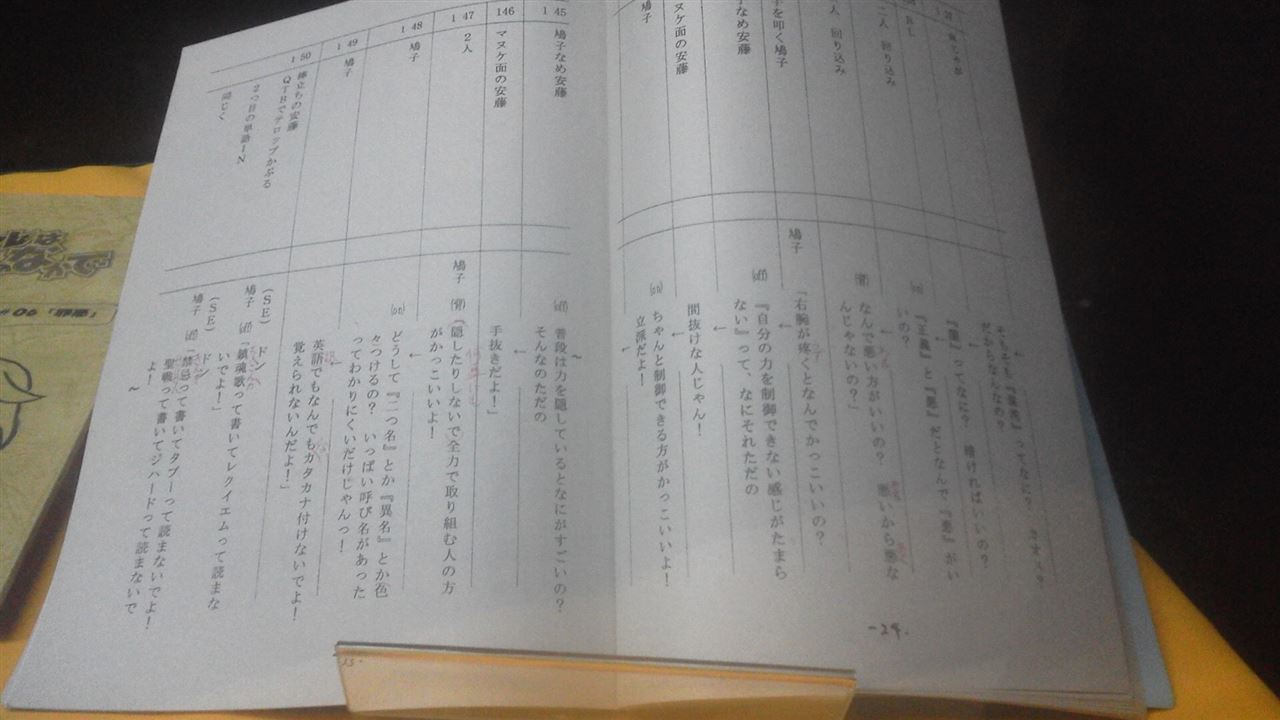 そもそも『混沌』ってなに？
だからなんなの？
『闇』ってなに？　暗ければいいの？
(on) 『正義』と『悪』だとなんで『悪』がい
いの？
(背) なんで悪い方がいいの？　悪いから悪な
んじゃないの？」
を叩く鳩子
鳩子
「右腕が疼くとなんでかっこいいの？
なめ安藤
(off) 『自分の力を制御できない感じがたまら
ない』って、なにそれただの
ヌケ面の安藤
間抜けな人じゃん！
鳩子
(on) ちゃんと制御できる方がかっこいいよ！
立派だよ！
人　回り込み
人　回り込み
-24.
145
鳩子なめ安藤
(off) 普段は力を隠しているとなにがすごいの？
そんなのただの
146
マヌケ面の安藤
手抜きだよ！」
147
2人
鳩子
(背) 「隠したりしないで全力で取り組む人の方
がかっこいいよ！
148
鳩子
(on) どうして『二つ名』とか『異名』とか色
々つけるの？　いっぱい呼び名があった
ってわかりにくいだけじゃんっ！
149
鳩子
英語でもなんでもカタカナ付けないでよ！
覚えられないんだよ！」
150
棒立ちの安藤
QTBでテロップかぶる
(SE) ドン
2つ目の単語IN
鳩子 (off) 「鎮魂歌って書いてレクイエムって読まな
いでよ！」
(SE) ドン
同じく
鳩子 (off) 「禁忌って書いてタブーって読まないでよ！
聖戦って書いてジハードって読まないで
よ！
#06「罪悪」